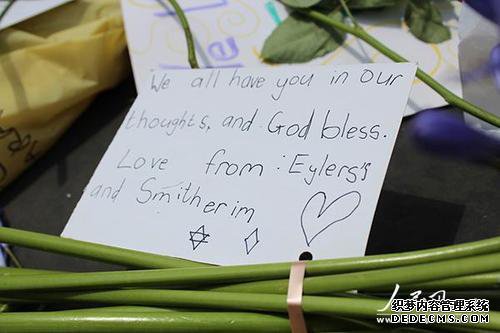 We all have you in our
thoughts, and God bless.
Love from Eylers's
and Smitherim
织梦内容管理系统
DEDECMS.COM